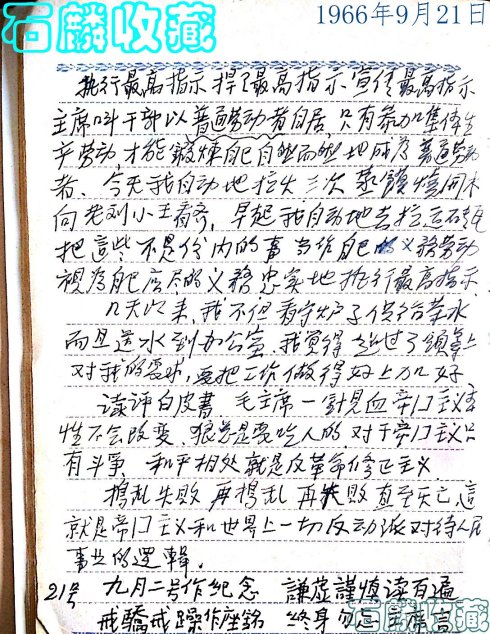 石麟收藏
1966年9月21日
执行最高指示 捍卫最高指示 宣传最高指示
主席叫干部以普通劳动者自居,只有参加集体生
产劳动,才能鍛煉自己自然而然地成为普通劳动
者、今天我自动地拉火三次 蒸饅燒開水
向老刘小王看齐,早起我自动地去拉运石頭
把這些不是份内的事当作自己的义務劳动
視为自己應尽的义務忠实地执行最高指示
几天以来,我不但看守炉子供给茶水
而且送水到办公室,我覚得超过了領導上
对我的要求,要把工作做得好上加好
读评白皮書 毛主席一針見血帝国主义本
性不会改变,狼总是要吃人的,对于帝国主义只
有斗爭,和平相处就是反革命修正主义
搗乱失败 再搗乱 再失败 直至灭亡 這
就是帝国主义和世界上一切反动派对待人民
事业的邏輯.
21号 九月二号作紀念 謙虚謹慎读百遍
戒驕戒躁作座銘 終身勿
石麟收藏